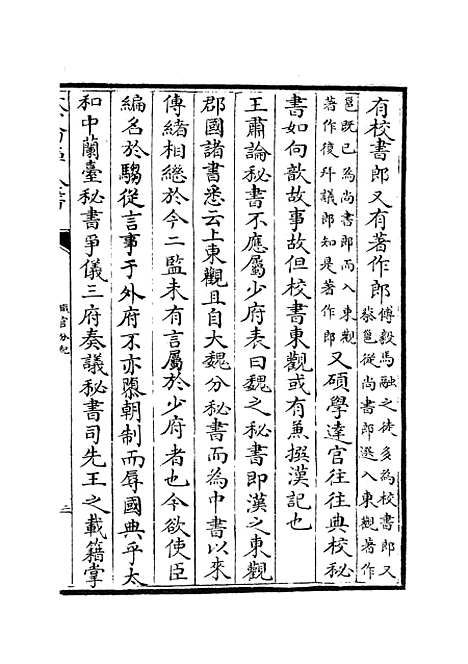 有校書郎又有著作郎傅毅馬融之徒多為校書郎又
蔡邕從尚書郎選入東觀著作
邕既已為尚書郎而入東觀
著作後拜議郎知是著作郎又碩學達官往往典校秘
書如向歆故事故但校書東觀或有兼撰漢記也
王肅論秘書不應屬少府表曰魏之秘書即漢之東觀
郡國諸書悉云上東觀且自大魏分秘書而為中書以來
傳緒相繼於今二監未有言屬於少府者也今欲使臣
編名於騶從言事于外府不亦隳朝制而辱國典乎太
和中蘭臺秘書爭儀三府奏議秘書司先王之載籍掌
職官分紀
二